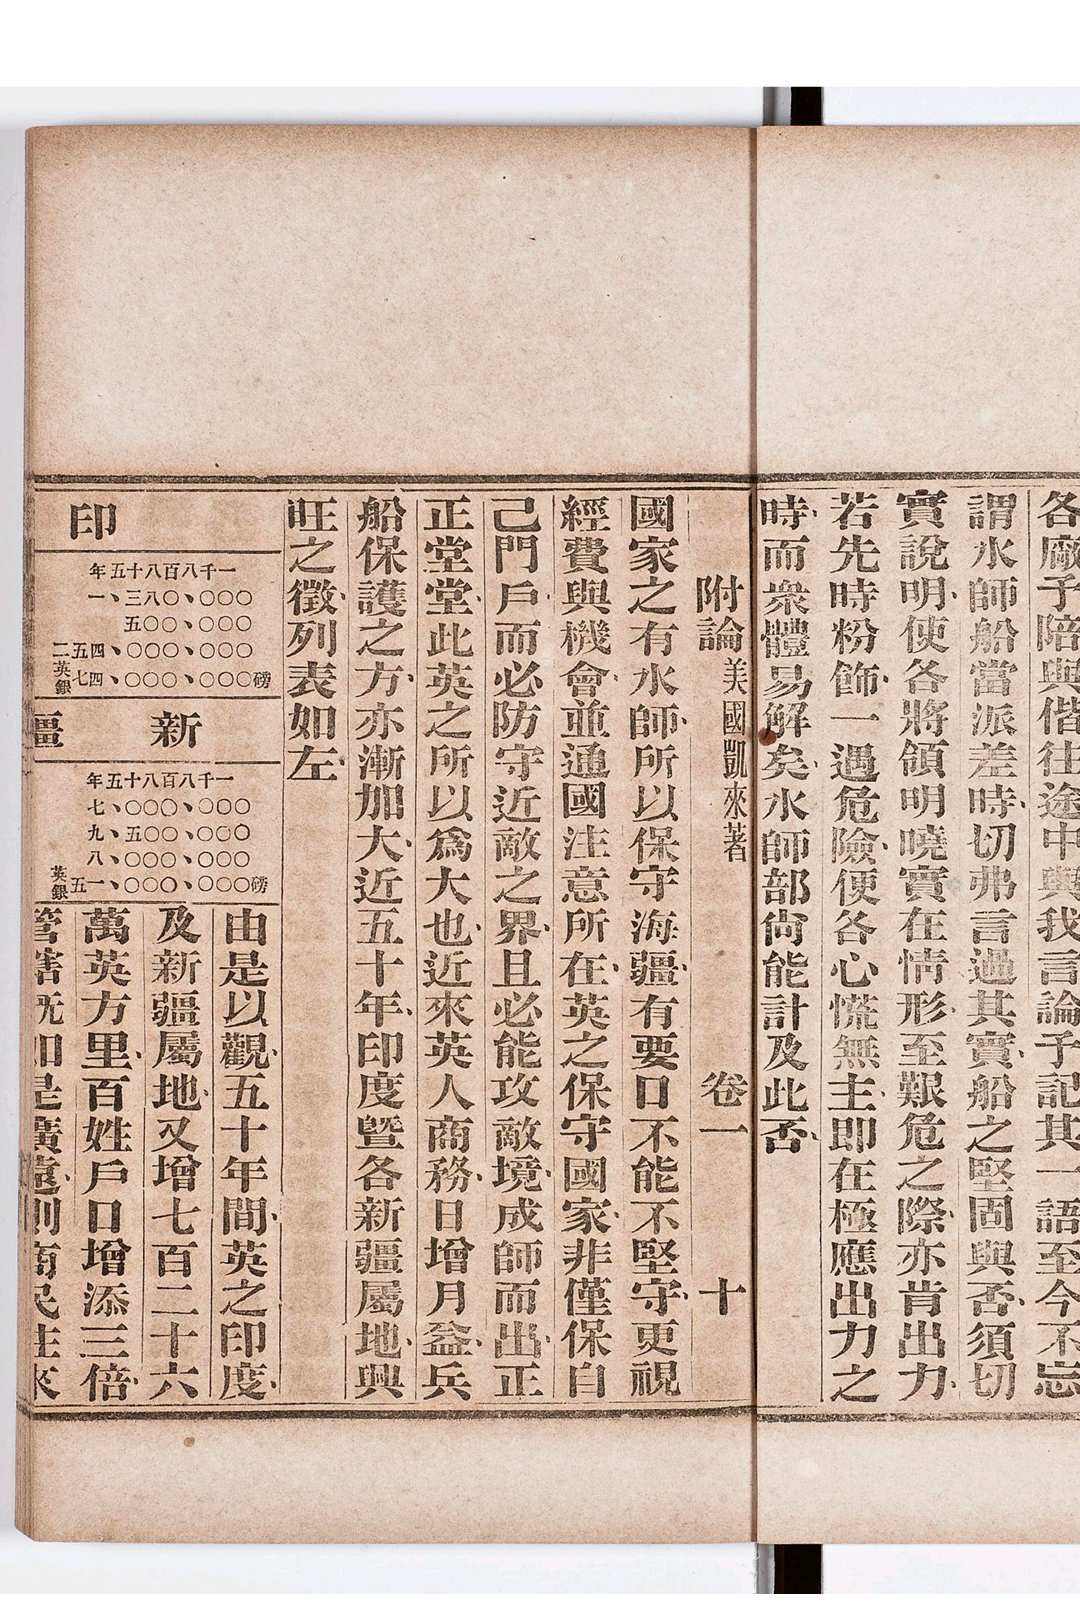 各厰予陪與偕往途中與我言論予記其一語至今不忘
謂水師船當派差時切弗言過其實船之堅固與否須切
實說明使各將領明曉實在情形至艱危之際亦肯出力
若先時粉飾一遇危險便各心慌無主即在極應出力之
時而衆體易解矣水師部尙能計及此否
附論美國凱來著 卷一 十
國家之有水師所以保守海疆有要口不能不堅守更視
經費與機會並通國注意所在英之保守國家非僅保自
己門戶而必防守近敵之界且必能攻敵境成師而出正
正堂堂此英之所以爲大也近來英人商務日增月益兵
船保護之方亦漸加大近五十年印度曁各新疆屬地興
旺之徵列表如左
印
一千八百八十五年
一、三八〇、〇〇〇
五〇〇、〇〇〇
二五四、〇〇〇、〇〇〇
英銀七四、〇〇〇、〇〇〇磅
新疆
一千八百八十五年
七、〇〇〇、〇〇〇
九、五〇〇、〇〇〇
八、〇〇〇、〇〇〇
英銀五一、〇〇〇、〇〇〇磅
由是以觀五十年間英之印度
及新疆屬地又增七百二十六
萬英方里百姓戶口增添三倍
管轄旣如是廣遠則商民往來